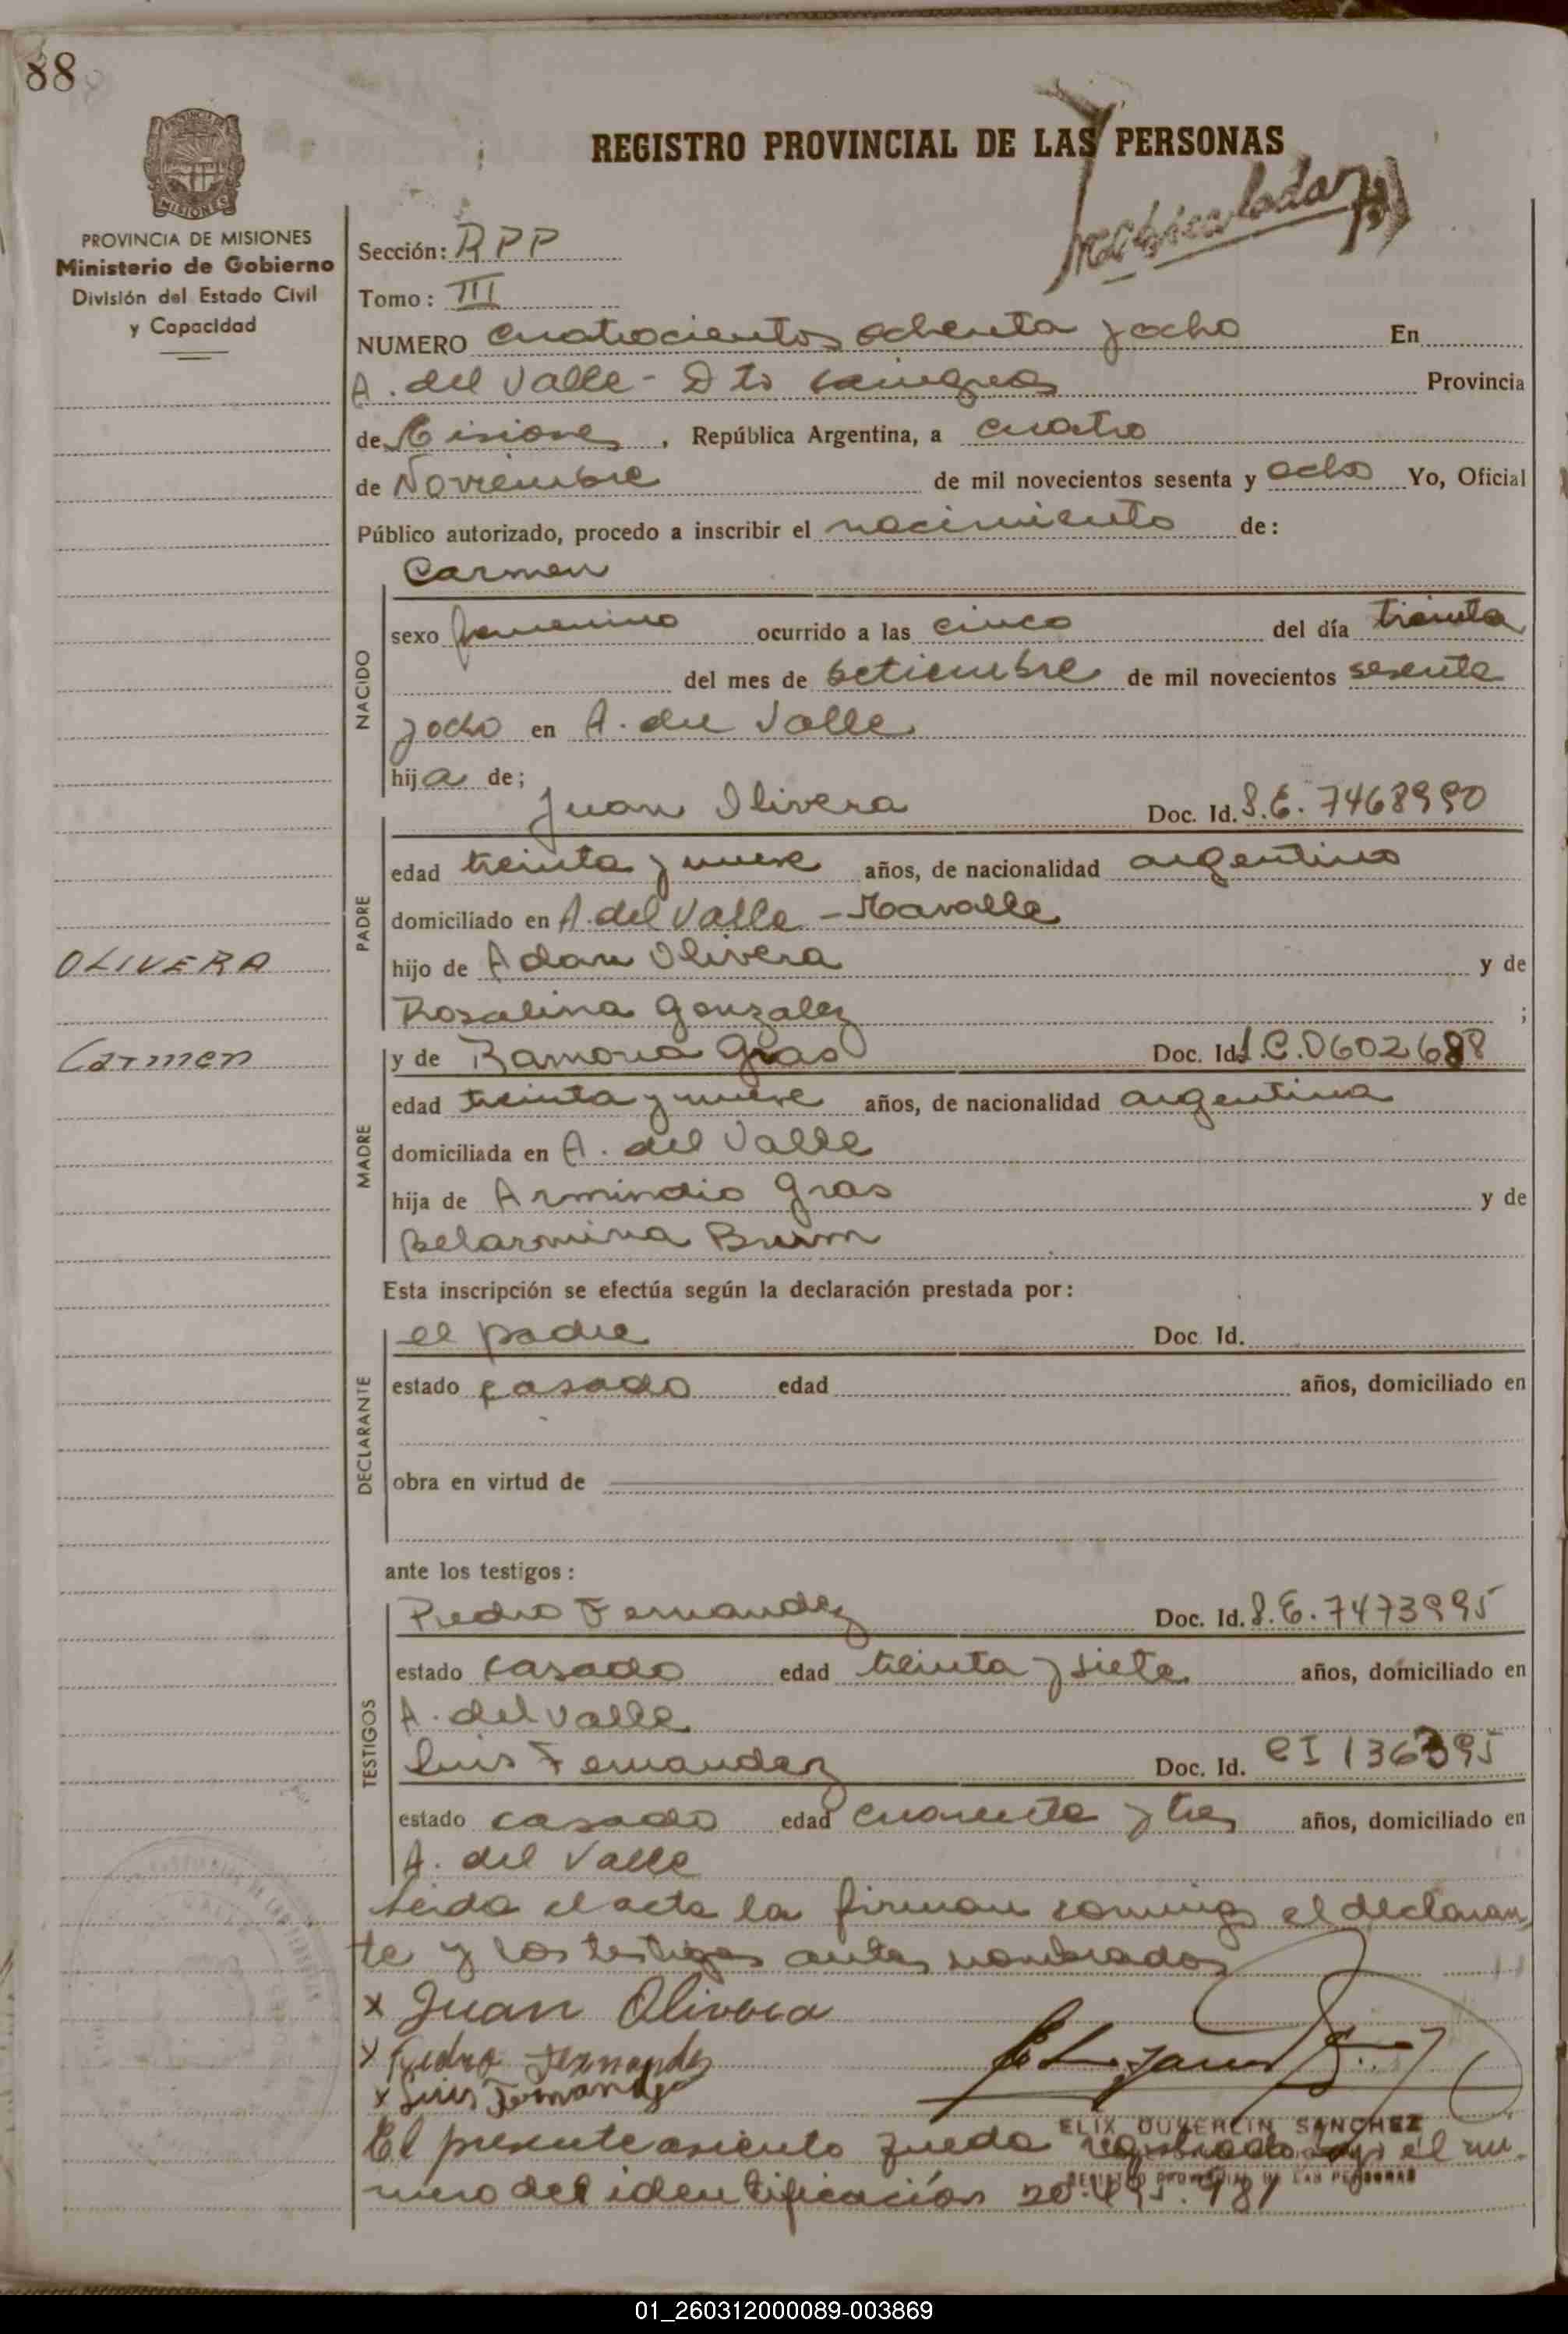 88
REGISTRO PROVINCIAL DE LAS PERSONAS
PROVINCIA DE MISIONES
Ministerio de Gobierno
División del Estado Civil
y Capacidad
Sección: RPP
Tomo: III
NUMERO cuatrocientos ochenta y ocho En
A. del Valle - Dto Cainguas Provincia
de Misiones, República Argentina, a cuatro
de Noviembre de mil novecientos sesenta y ocho Yo, Oficial
Público autorizado, procedo a inscribir el nacimiento de:
Carmen
NACIDO
sexo femenino ocurrido a las cinco del día treinta
del mes de setiembre de mil novecientos sesenta
y ocho en A. del Valle
hija de;
Juan Olivera Doc. Id. 7468990
PADRE
edad treinta y nueve años, de nacionalidad argentino
domiciliado en A. del Valle -
OLIVERA
hijo de Adan Olivera y de
Rosalina Gonzalez ;
Carmen
y de Ramona Gras Doc. Id. 0602688
MADRE
edad treinta y nueve años, de nacionalidad argentina
domiciliada en A. del Valle
hija de Armindio Gras y de
Belarmina
Esta inscripción se efectúa según la declaración prestada por:
DECLARANTE
el padre Doc. Id.
estado casado edad años, domiciliado en
obra en virtud de
ante los testigos:
TESTIGOS
Pedro Fernandez Doc. Id. 7473995
estado casado edad treinta y siete años, domiciliado en
A. del Valle
Luis Fernandez Doc. Id. CI 136395
estado casado edad cuarenta y tres años, domiciliado en
A. del Valle
Leida el acta la firman conmigo el declaran
te y los testigos antes nombrados
x Juan Olivera
x Pedro Fernandez
x Luis Fernandez
ELIX DUVERLIN SANCHEZ
El presente asiento queda registrado bajo el nu
REGISTRO PROVINCIAL DE LAS PERSONAS
mero del identificación 20.
01_260312000089-003869